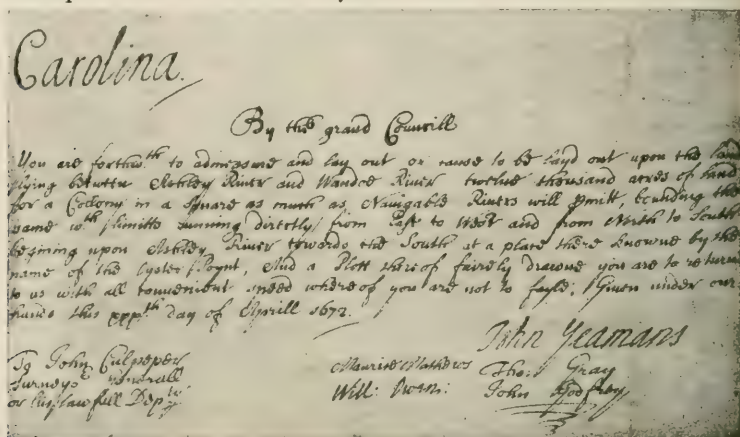 Carolina.
By the grand Councill
You are forthwth to admeasure and lay out or cause to be layd out upon the land
lying betweene Ashley River and Wandoe River twelve thousand acres of land
for a Collony in a square as much as Navigable Rivers will pmitt, bounding the
same wth Limitts running directly from East to West and from North to South
begining upon Ashley River towards the South at a place there knowne by the
name of the Oyster Poynt, And a Plott thereof fairely drawne you are to returne
to us with all convenient speed whereof you are not to fayle, Given under our
hands this xxxth day of Aprill 1672.
John Yeamans
To John Culpeper
Surveyr Generall
or his lawfull Depty
Maurice Mathews
Will: Owen:
Tho: Gray
John Godfrey